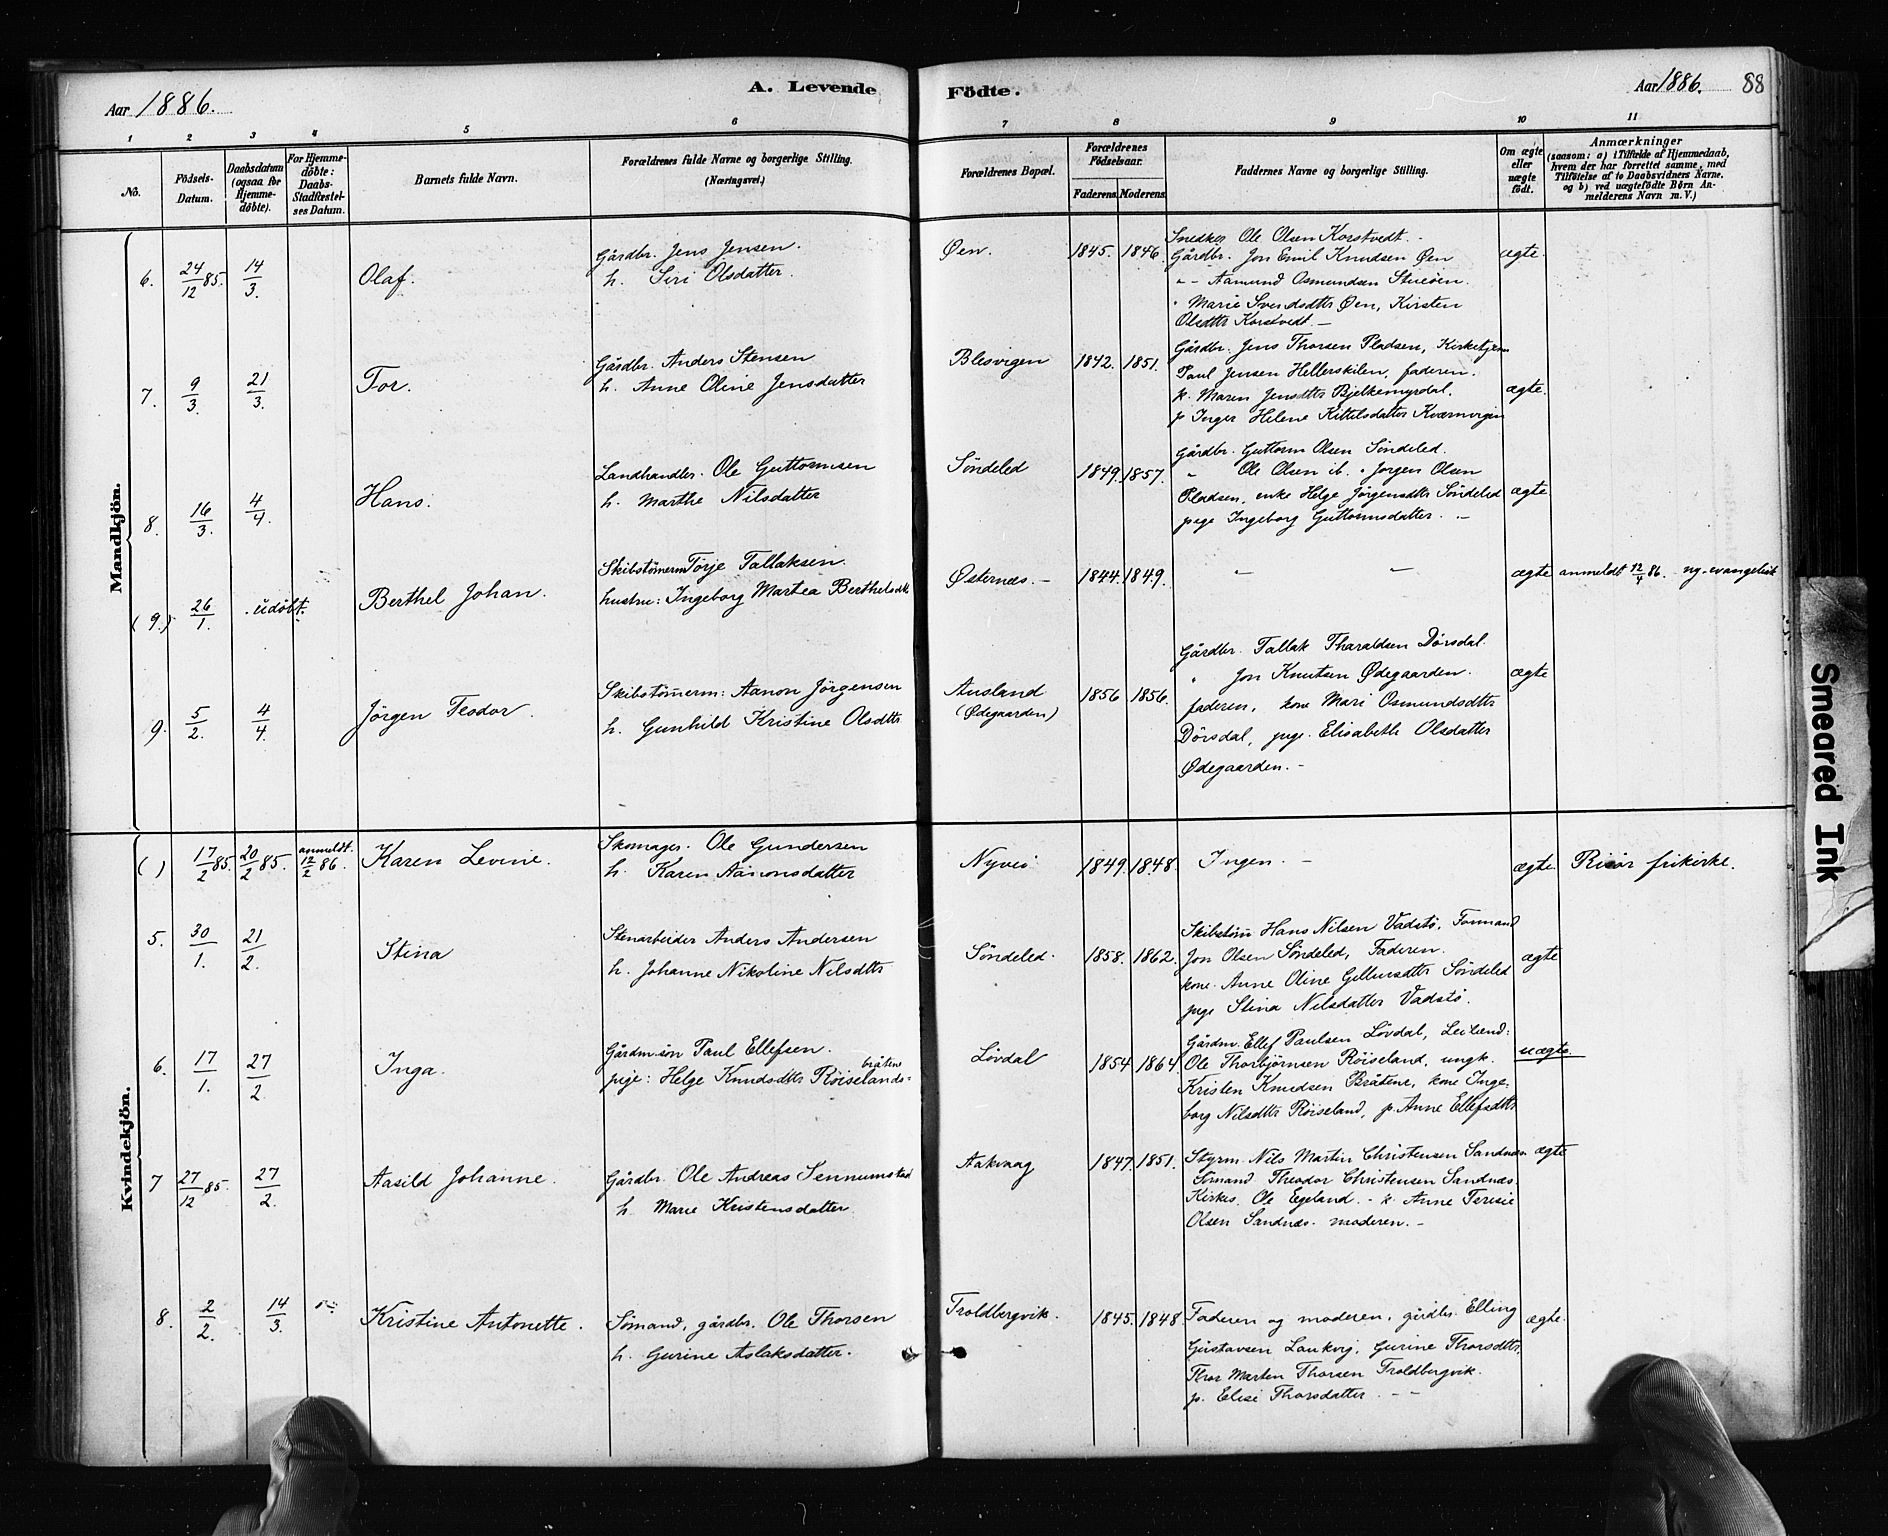 Aar 1886.
A. Levende Födte.
Aar 1886. 88
1 2 3 4 5 6 7 8 9 10 11
No.
Födsels-Datum.
Daabsdatum (ogsaa for Hjemme-döbte).
For Hjemme-döbte: Daabs-Stadfæstel-ses Datum.
Barnets fulde Navn.
Forældrenes fulde Navne og borgerlige Stilling. (Næringsvei.)
Forældrenes Bopæl.
Forældrenes Födselsaar.
Faderens. Moderens.
Faddernes Navne og borgerlige Stilling.
Om ægte eller uægte födt.
Anmærkninger
(saasom: a) i Tilfælde af Hjemmedaab,
hvem der har forrettet samme, med
Tilföielse af to Daabsvidners Navne.
og b) ved uægtefödte Börn An-
melderens Navn m. V.)
Mandkjön.
6. 24/12 85. 14/3. Olaf.
Gårdbr. Jens Jensen.
h. Siri Olsdatter.
Øen. 1845. 1846.
Snedker Ole Olsen Korstvedt.
Gårdbr. Jon Emil Knudsen Øen
" - Aamund Osmundsen Stueöen.
" Marie Svendsdttr Øen, Kirsten
Olsdttr Korstvedt. -
ægte.
7. 9/3. 21/3. Tor.
Gårdbr. Anders Stensen
h. Anne Oline Jensdatter
Blesvigen 1842. 1851.
Gårdbr. Jens Thorsen Pladsen, Kirketjener
Paul Jensen Hellerskilen, faderen.
k. Maren Jensdttr Bjelkemyrdal.
p Inger Helene Kittelsdatter Kværnvigen
ægte.
8. 16/3. 4/4. Hans.
Landhandler. Ole Guttormsen
h. Marthe Nilsdatter
Söndeled 1849. 1857.
Gårdbr. Guttorm Olsen Söndeled.
" Ole Olsen ib. " Jörgen Olsen
Pladsen, enke Helge Jörgensdttr Söndeled
pige Ingeborg Guttormsdatter. -
ægte
(9.) 26/1. udöbt. Berthel Johan.
Skibstömerm Törje Tallaksen.
hustru: Ingeborg Martea Berthelsdtt
Østernæs. - 1844. 1849. - -
ægte anmeldt 12/4 86. - ny-evangelisk
9. 5/2. 4/4. Jörgen Teodor.
Skibstömerm: Aanon Jörgensen
h. Gunhild Kristine Olsdttr
Ausland
(Ødegaarden)
1856 1856.
Gårdbr. Tallak Tharaldsen Dörsdal.
" Jon Knutsen Ødegaarden.
faderen, kone Mari Osmundsdttr
Dörsdal, pige. Elisabeth Olsdatter
Ødegaarden. -
ægte
Kvindekjön.
( ) 17/2 85. 20/2 85. anmeldt. 12/2 86. Karen Levine.
Skomager. Ole Gundersen
h. Karen Aanonsdatter
1849. 1848. Ingen. -
ægte. Risör frikirke.
5. 30/1. 21/2. Stina
Stenarbeider Anders Andersen
h. Johanne Nikoline Nilsdttr
Söndeled. 1858. 1862.
Skibstöm Hans Nilsen Vadstö, Formand
Jon Olsen Söndeled, Faderen.
kone. Anne Oline Söndeled
pige Stina Nilsdatter Vadstö.
ægte
6. 17/1. 27/2. Inga.
Gårdm.sön Paul Ellefsen.
pige: Helge Knudsdttr Röiselands= bråten
Lövdal 1854 1864.
Gårdm. Ellef Paulsen Lövdal, Leilænd:
Ole Thorbjörnsen Röiseland, ungk.
Kristen Knudsen Bråtene, kone Inge-
borg Nilsdttr Röiseland, p. Anne Ellefsdttr
uægte.
7 27/12 85. 27/2. Aasild Johanne.
Gårdbr. Ole Andreas Sennumstad
h. Marie Kristensdatter
Aakvaag 1847. 1851.
Styrm. Nils Martin Christensen Sandnæs
Sömand Theodor Christensen Sandnæs.
Kirkes. Ole Egeland. - k. Anne Teresie
Olsen Sandnæs. moderen. -
ægte
8. 2/2. 14/3. Kristine Antonette.
Sömand, gårdbr. Ole Thorsen
h. Gurine Aslaksdatter.
Troldbergvik. 1845. 1848
Faderen og moderen, gårdbr. Elling
Gustavsen Laukvig, Gurine Thorsdttr,
Thor Marten Thorsen Troldbergvik.
p. Elise Thorsdatter. - -
ægte.
Smeared Ink